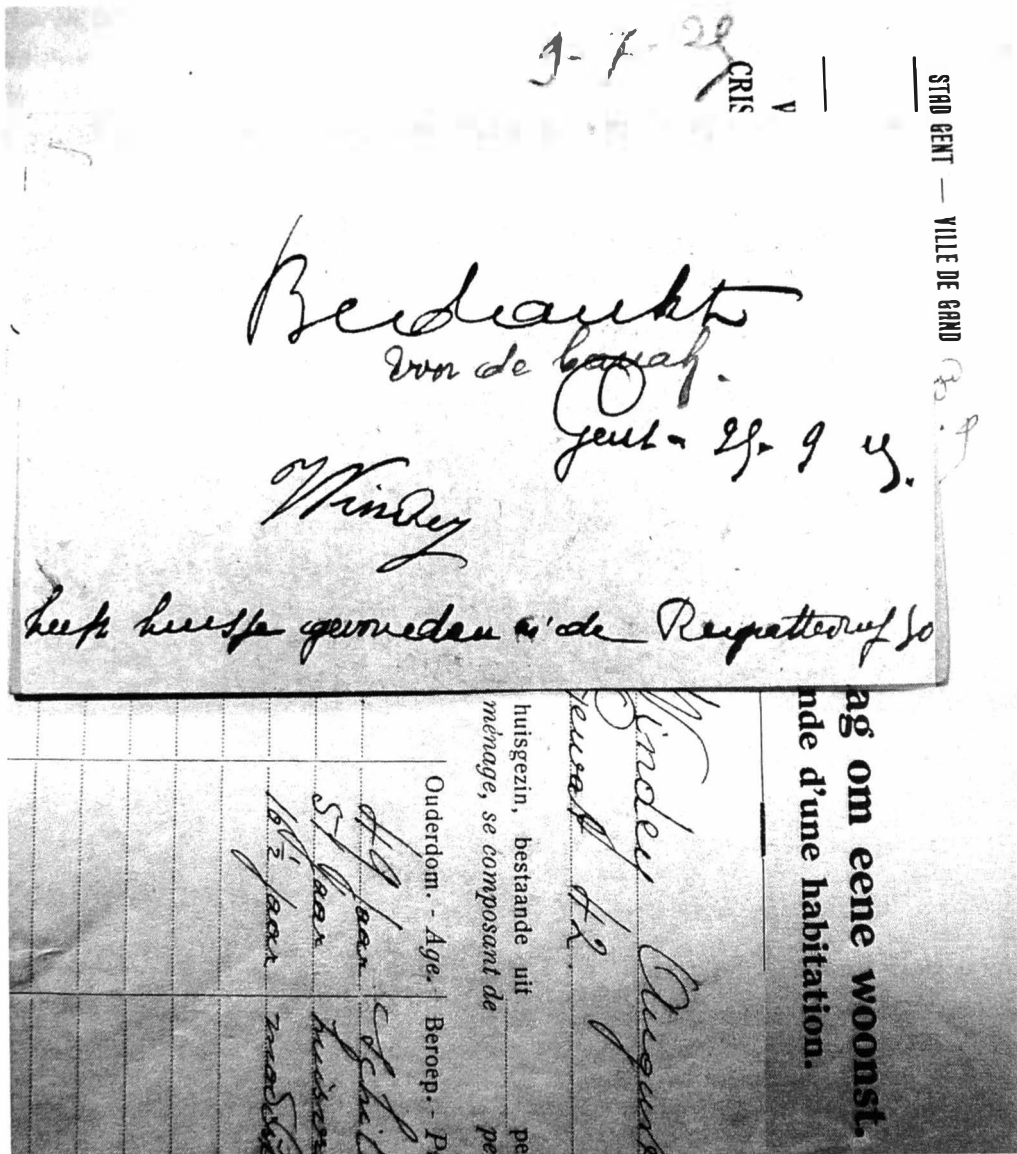 9-7-29
CRIS
V
STAD GENT — VILLE DE GAND
Bedankt
voor de barak.
Gent - 25- 9
Windey
heeft huisje gevonden de
ag om eene woonst.
nde d'une habitation.
Windey August
42.
huisgezin, bestaande uit pe
ménage, se composant de pe
Ouderdom. - Age. Beroep. - P
49 jaar Schil
57 jaar huisv
16½ jaar